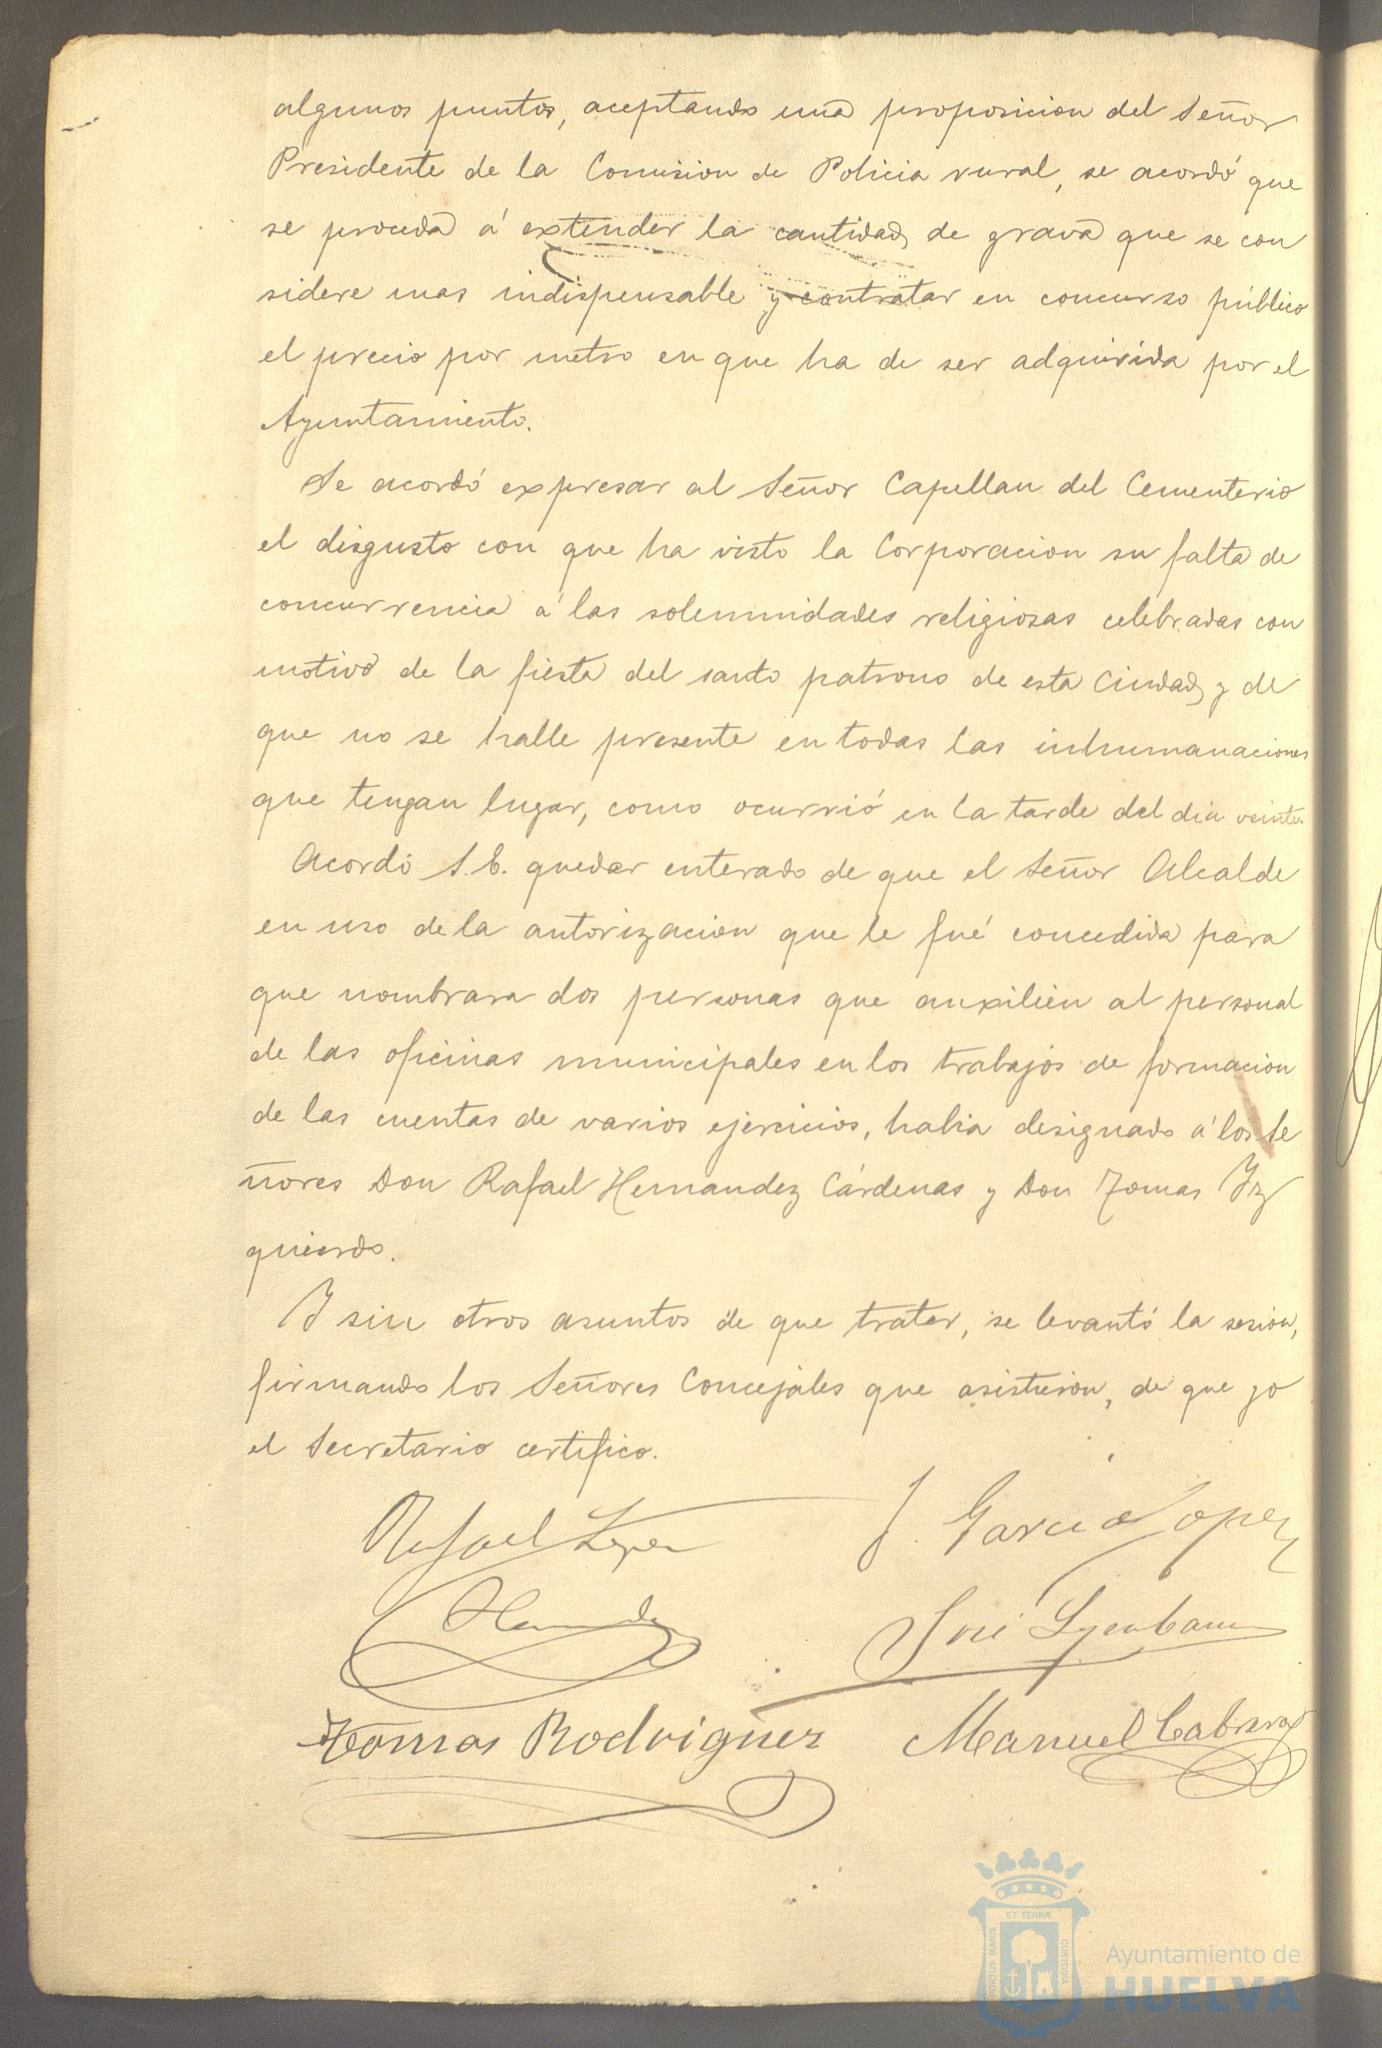 algunos puntos, aceptando una proposicion del Señor
Presidente de la Comision de Policia rural, se acordó que
se proceda á extender la cantidad de grava que se con
sidere mas indispensable y contratar en concurso público
el precio por metro en que ha de ser adquirida por el
Ayuntamiento.
Se acordó expresar al Señor Capellan del Cementerio
el disgusto con que ha visto la Corporacion su falta de
concurrencia á las solemnidades religiosas celebradas con
motivo de la fiesta del santo patrono de esta Ciudad y de
que no se halle presente en todas las inhumanaciones
que tengan lugar, como ocurrió en la tarde del dia veinte.
Acordó S.E. quedar enterado de que el Señor Alcalde
en uso de la autorizacion que le fué concedida para
que nombrara dos personas que auxilien al personal
de las oficinas municipales en los trabajos de formacion
de las cuentas de varios ejercicios, habia designado á los Se
ñores Don Rafael Hernandez Cárdenas y Don Tomas Yz
quierdo.
Y sin otros asuntos de que tratar, se levantó la sesion,
firmando los Señores Concejales que asistieron, de que yo
el Secretario certifico.
Rafael Lopez J. Garcia Lopez
Hernandez José
Tomas Rodriguez Manuel Cabrera
PORTUS MARIS ET TERRÆ CUSTODIA
Ayuntamiento de
HUELVA